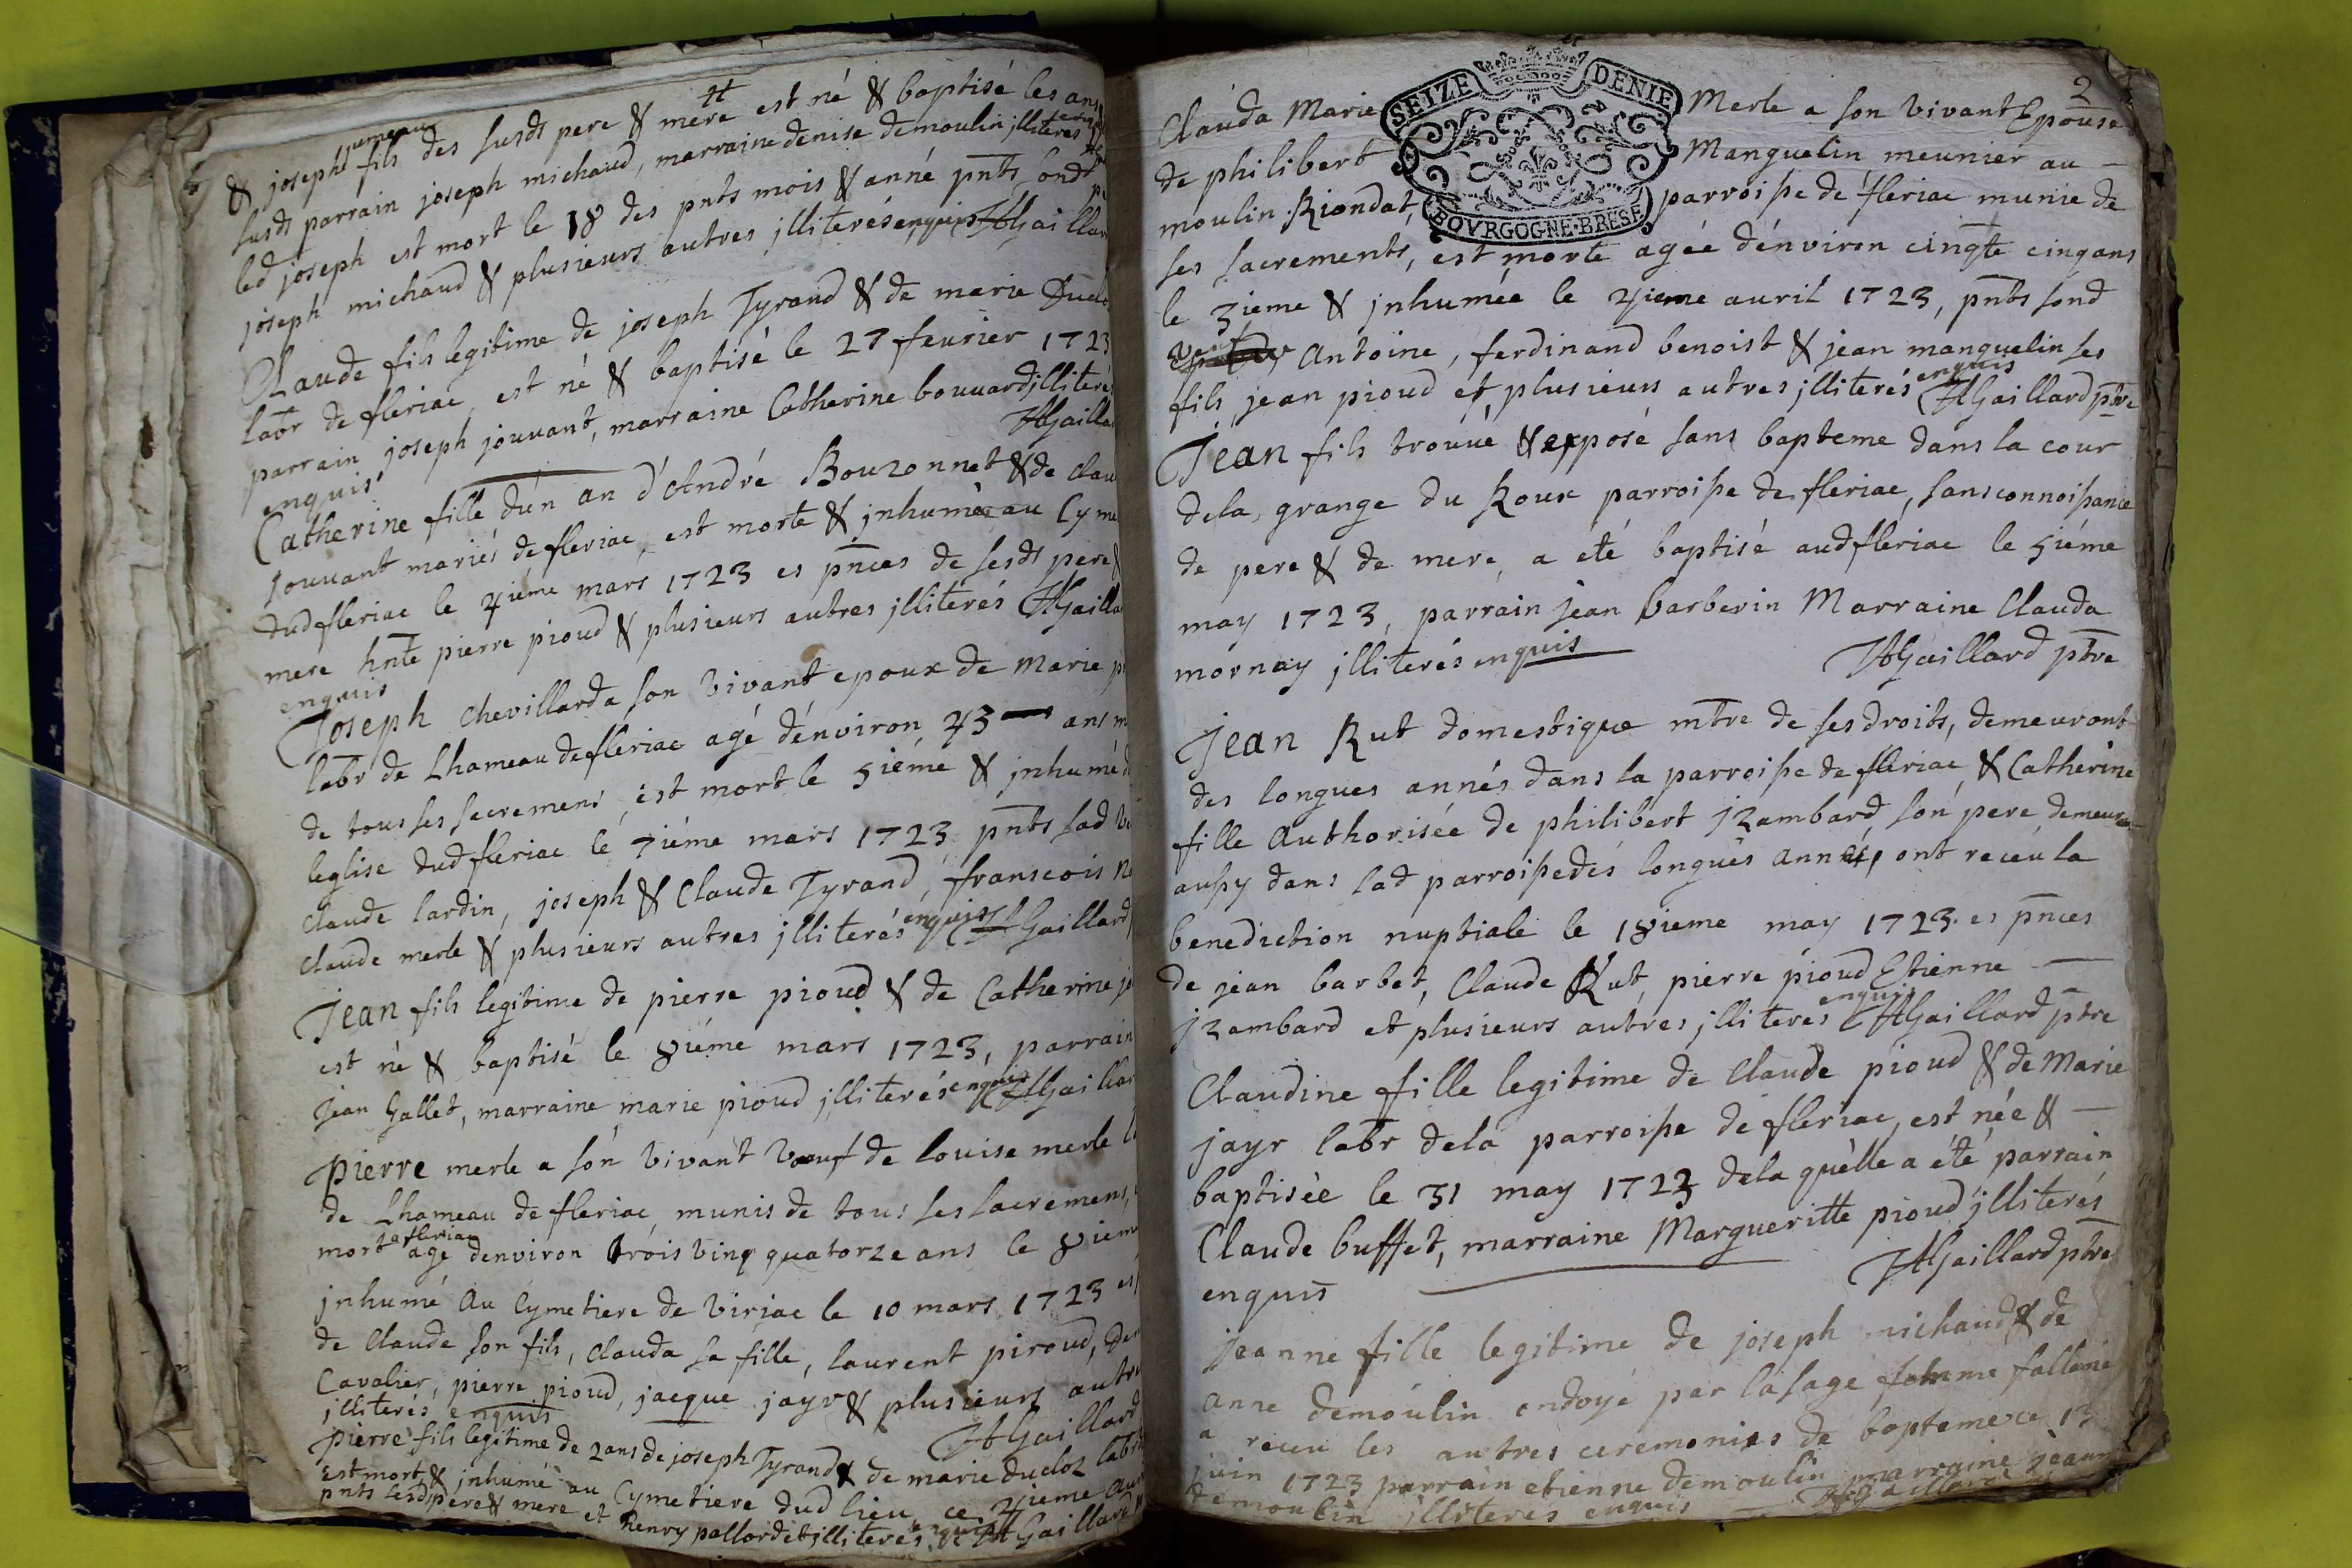 & joseph jumeau fils des susds pere & mere est né & baptisé les ans
susds parrain joseph michaud, marraine denise demoulin illiterés
led joseph est mort le 18 des pnts mois & anné pnts ond
joseph michaud & plusieurs autres jlliterés enquis JAGaillar
Claude fils legitime de joseph Tyrand & de marie Duclo
labr de fleriac, est né & baptisé le 27 feurier 1723
parrain joseph jouuant, marraine Catherine bouuard jlliteré
enquis JAGailla
Catherine fille dún an d'André Bouzonnet & de clau
jouuant mariés de fleriac, est morte & jnhumèe au Cyme
dud fleriac le 4iéme mars 1723 es pnces de sesds pere &
mere hnte pierre pioud & plusieurs autres jlliterés JAGailla
enquis
Joseph chevillard a son vivant epoux de Marie p
labr de Lhameau de fleriac agé dénviron 43 ans m
de tous ses sacremens, est mort le 5iéme & jnhumé d
leglise dud fleriac le 7iéme mars 1723 pnts sad
claude lardin, joseph & Claude Tyrand, franscois
claude merle & plusieurs autres jlliterés enquis JAGaillard
Jean fils legitime de pierre pioud & de Catherine
est né & baptisé le 8iéme mars 1723, parrain
Jean Gallet, marraine marie pioud jlliterés enquis JAGaillar
pierre merle a són vivant vœuf de louise merle
de Lhameau de fleriac, munis de tous ses sacremens,
mort a fleriac agé denviron trois ving quatorze ans le 8iem
jnhumé au Cymetiere de viriac le 10 mars 1723 es
de Claude son fils, clauda sa fille, laurent piroud, de
Cavalier, pierre pioud, jacque jayr & plusieurs autre
jlliterés enquis JAGaillard
pierre fils legitime de 2 ans de joseph Tyrand & de marie duclos labr
est mort & jnhumé au Cymetiere dud lieu ce 4ieme au
pnts sesd pere & mere et henry pallordet jlliterés enquis JAGaillard
2
SEIZE DENIE
BOVRGOGNE·BRESE
Clauda Marie Merle a son vivant Epouse
de philibert Manguelin meunier au
moulin Riondat, parroisse de fleriac munie de
ses sacrements, est morte agée dénviron cinqte cinq ans
le 3ieme & jnhumée le 4ieme auril 1723, pnts sond
Antoine, ferdinand benoist & jean manguelin ses
fils, jean pioud et plusieurs autres jlliterés enquis JAGaillard ptre
Jean fils trouué & exposé sans bapteme dans la cour
dela grange du Roux parroisse de fleriac, sans connoissance
de pere & de mere, a eté baptisé aud fleriac le 5iéme
may 1723, parrain jean barberin Marraine Clauda
mornay jlliterés enquis JAGaillard ptre
Jean Rut domestique mtre de ses droits, demeurant
des longues annés dans la parroisse de fleriac, & Catherine
fille Authorisée de philibert jzambard són pere demeurant
aussy dans lad parroisse dés longues années, ont receu la
benediction nuptiale le 18ieme may 1723 es pnces
de jean barbet, Claude Rut, pierre pioud Etienne
jzambard et plusieurs autres jlliterés enquis JAGaillard ptre
Claudine fille legitime de Claude pioud & de Marie
jayr labr dela parroisse de fleriac, est née &
baptisèe le 31 may 1723 dela quèlle a été parrain
Claude buffet, marraine Margueritte pioud jlliterés
enquis JAGaillard ptre
jeanne fille legitime de joseph michaud & de
anne demoulin ondoyé par la sage femme
a receu les autres ceremonies de bapteme ce 13
juin 1723 parrain etienne demoulin marraine jeanne
demoulin jlliterés enquis JAGaillard